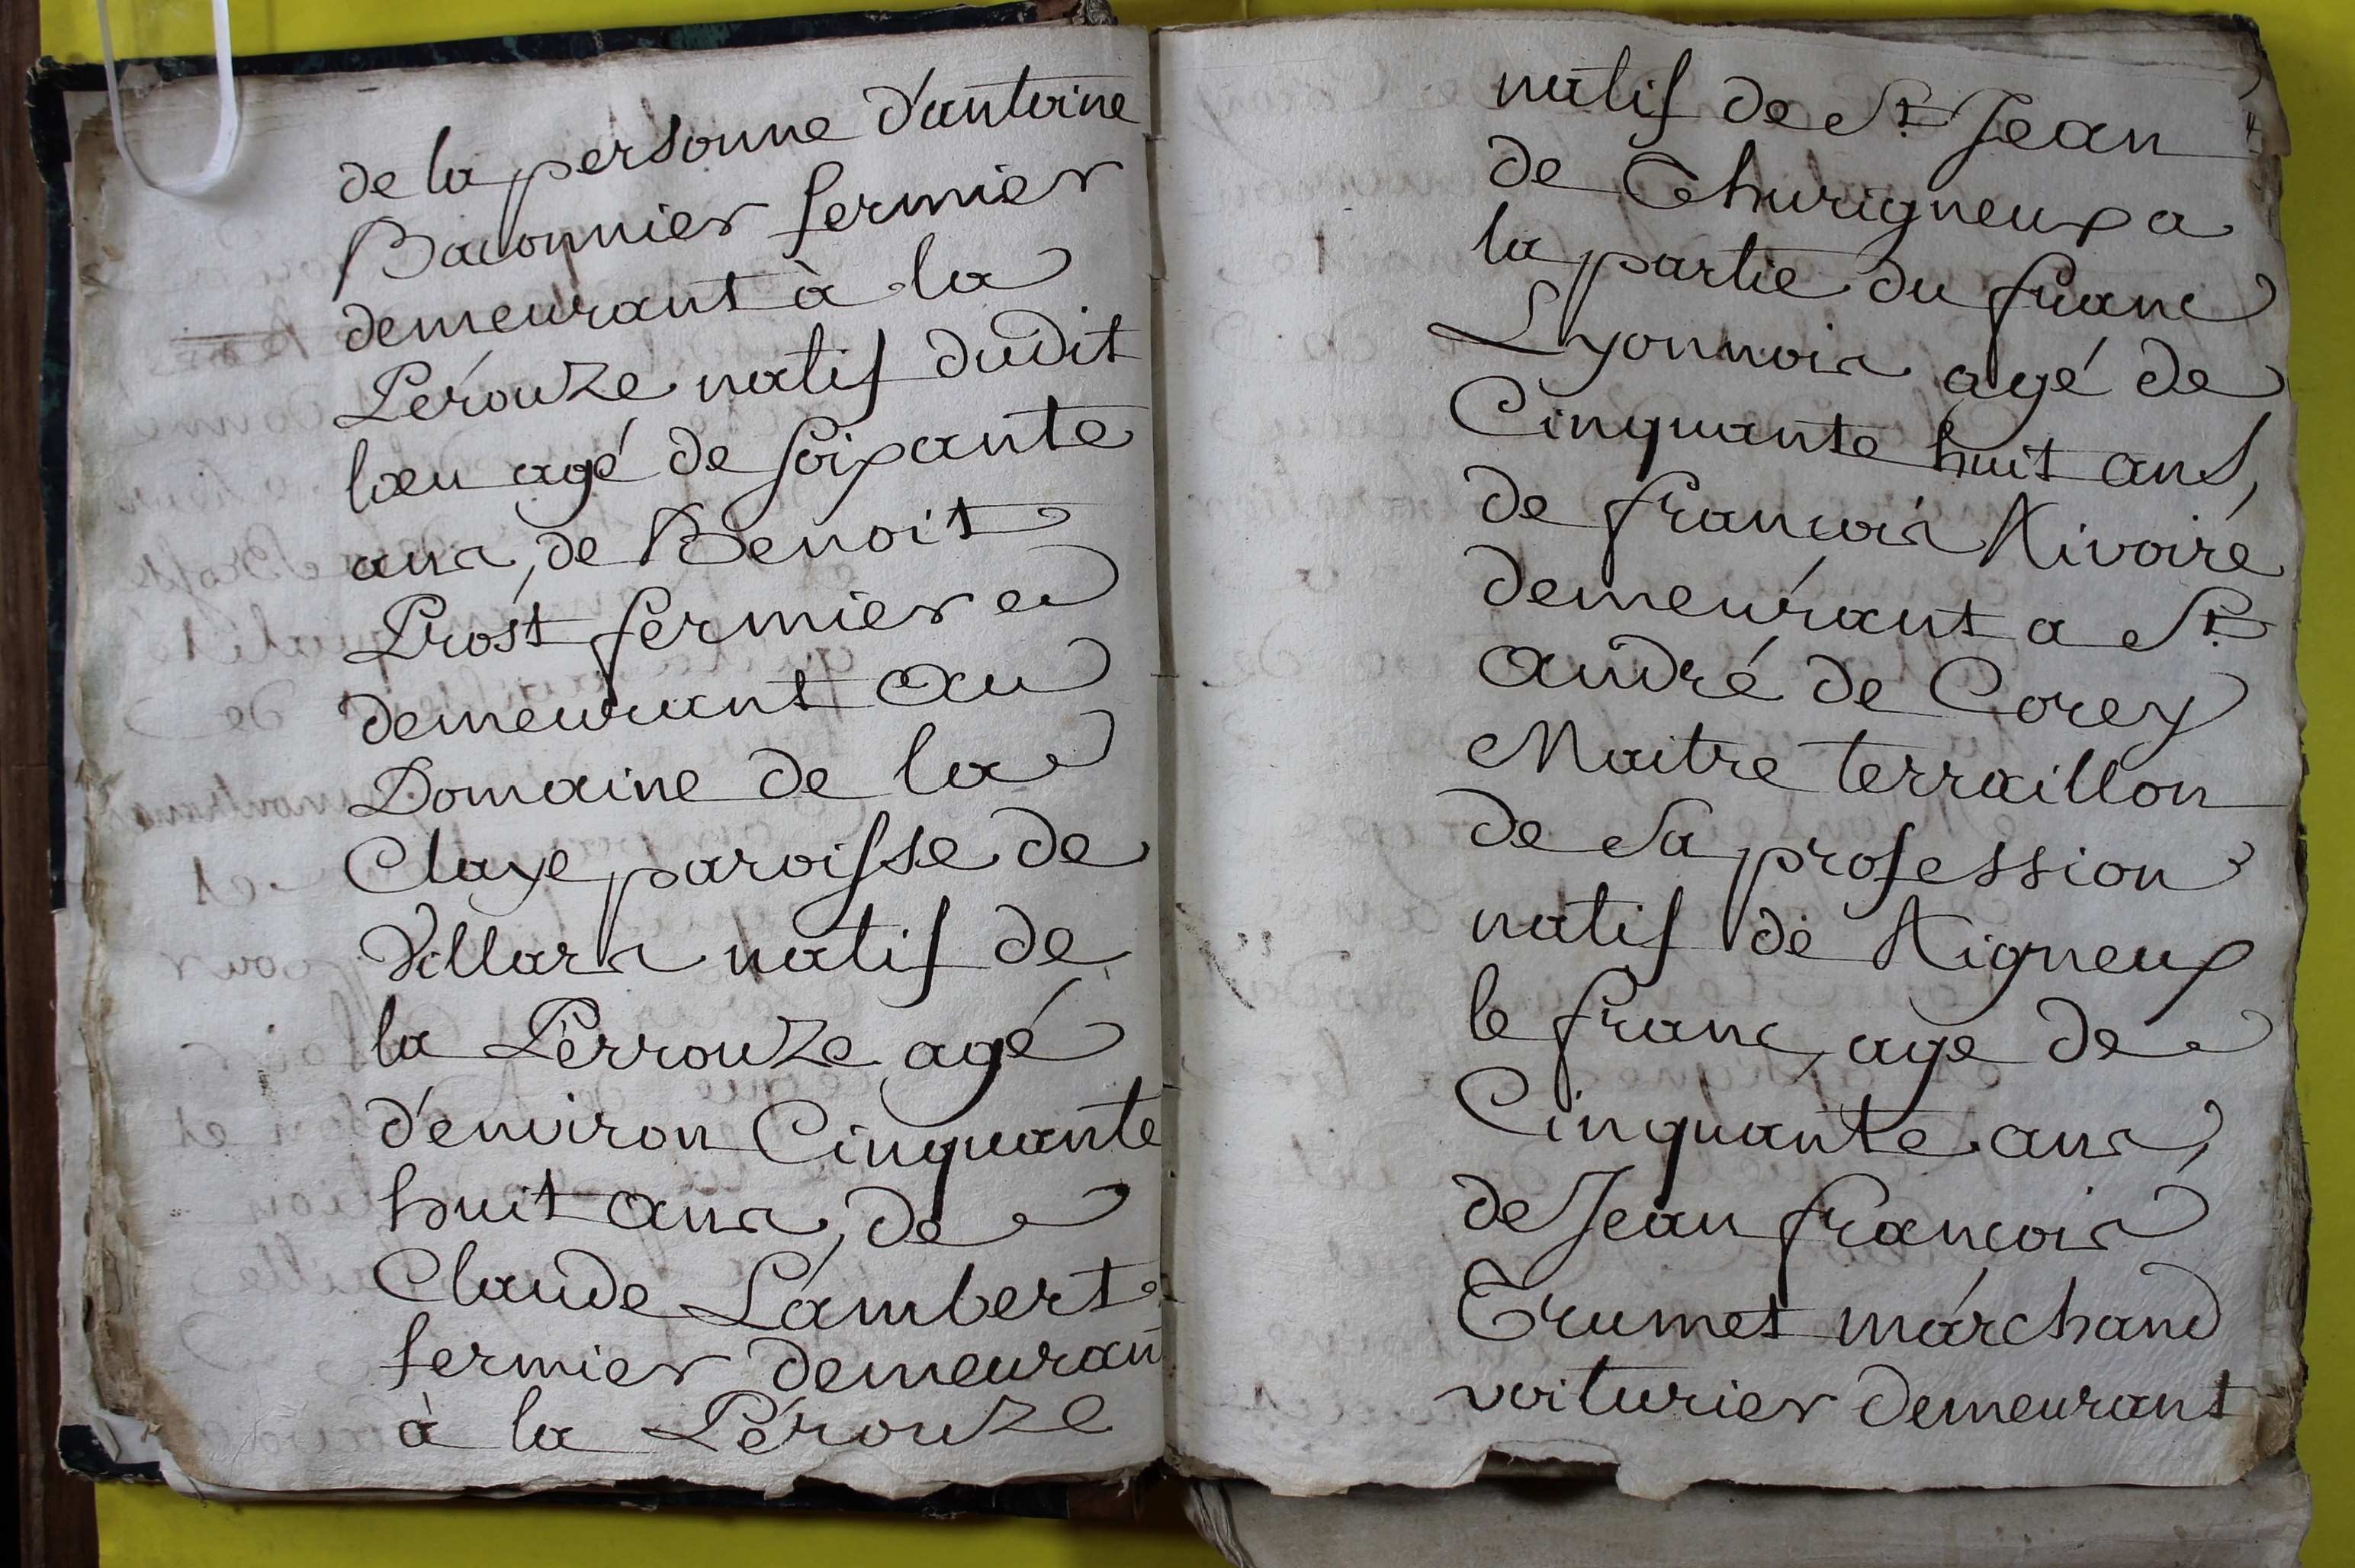 de la personne d'antoine
Baconnier fermier
demeurant à la
Pérouze natif dudit
lieu agé de soixante
ans, de Benoit
Prost fermier
demeurant au
Domaine de la
Claye paroisse de
Villars natif de
la Pérrouze agé
d'environ Cinquante
huit ans, de
Claude Lambert
fermier demeurant
à la Pérouze
natif de St. Jean
de Thurigneux a
la partie du franc
Lyonnois agé de
Cinquante huit ans,
de françois Rivoire
demeurant a St.
andré de Corcy
Maitre terraillon
de Sa profession
natif de Rigneux
le franc, age de
Cinquante ans,
de Jean françois
Trumet marchand
voiturier demeurant